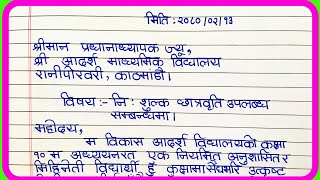 मिति : २०८०/०२/१३
श्रीमान प्रधानाध्यापक ज्यू,
श्री आदर्श माध्यमिक विद्यालय
रानीपोखरी, काठमाडौं।
विषय :- नि : शुल्क छात्रवृति उपलब्ध
सम्बन्धमा।
महोदय,
म विकास आदर्श विद्यालयको कक्षा
१० म अध्ययनरत एक नियमित अनुशासित र
विद्यार्थी हुँ कक्षामा उत्कृष्ट